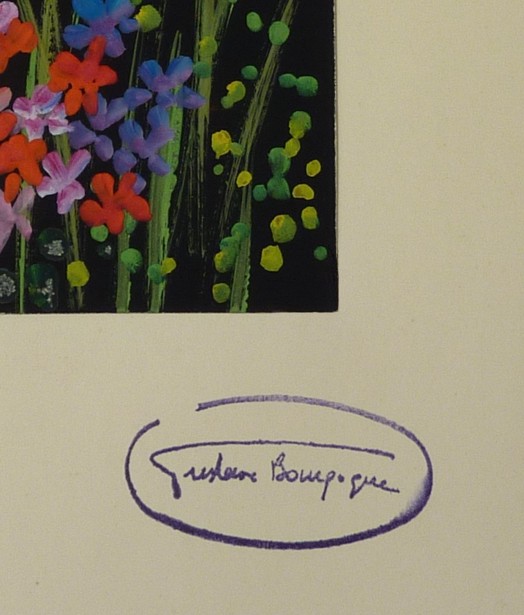 Gustave Bourgogne